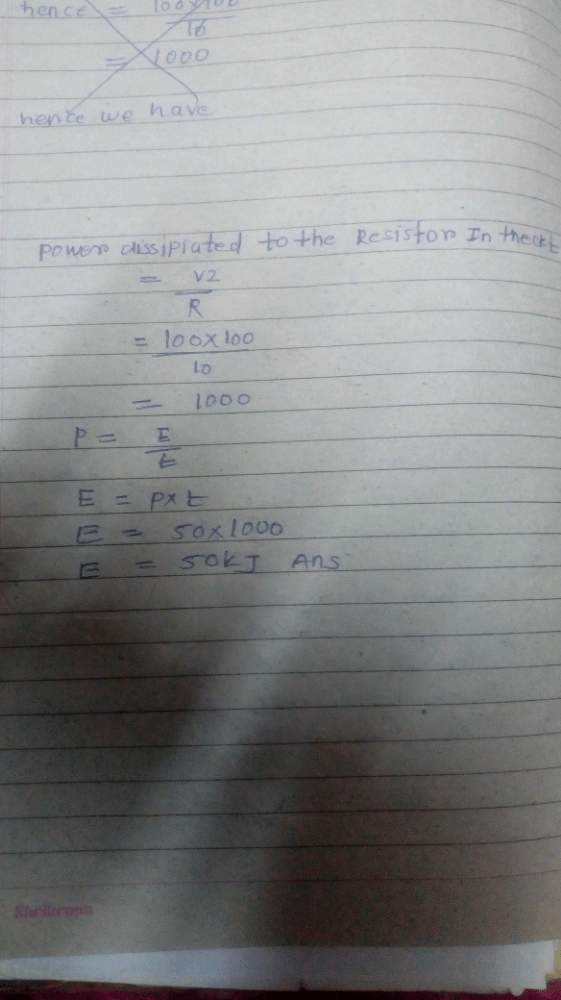 hence = 100x100
10
= 1000
hence we have
power dissipiated to the Resistor In theckt
= V2
R
= 100x100
10
= 1000
P = E
t
E = pxt
E = 50x1000
E = 50kJ Ans